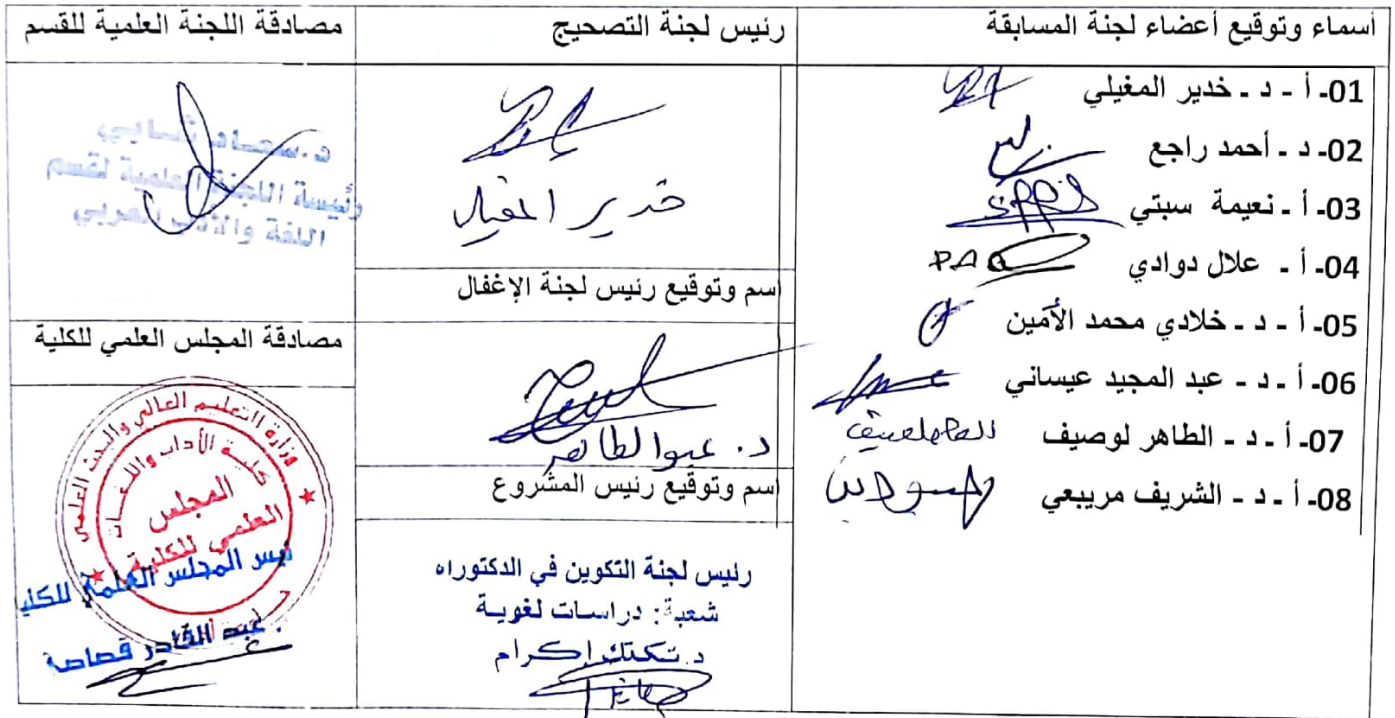 أسماء وتوقيع أعضاء لجنة المسابقة
01- أ - د - خدير المغيلي
02- د - أحمد راجع
03- أ - نعيمة سبتي
04- أ - علال دوادي
05- أ - د - خلادي محمد الأمين
06- أ - د - عبد المجيد عيساني
07- أ - د - الطاهر لوصيف
08- أ - د - الشريف مريبعي
رئيس لجنة التصحيح
خدير المغيلي
اسم وتوقيع رئيس لجنة الإغفال
د. عبو الطاهر
اسم وتوقيع رئيس المشروع
رئيس لجنة التكوين في الدكتوراه
شعبة: دراسات لغوية
د. تكتك إكرام
مصادقة اللجنة العلمية للقسم
د. سعاد
رئيسة اللجنة العلمية لقسم
اللغة والأدب العربي
مصادقة المجلس العلمي للكلية
وزارة التعليم العالي والبحث العلمي
كلية الآداب واللغات
المجلس
العلمي للكلية
رئيس المجلس العلمي للكلية
عبد القادر قصاصة